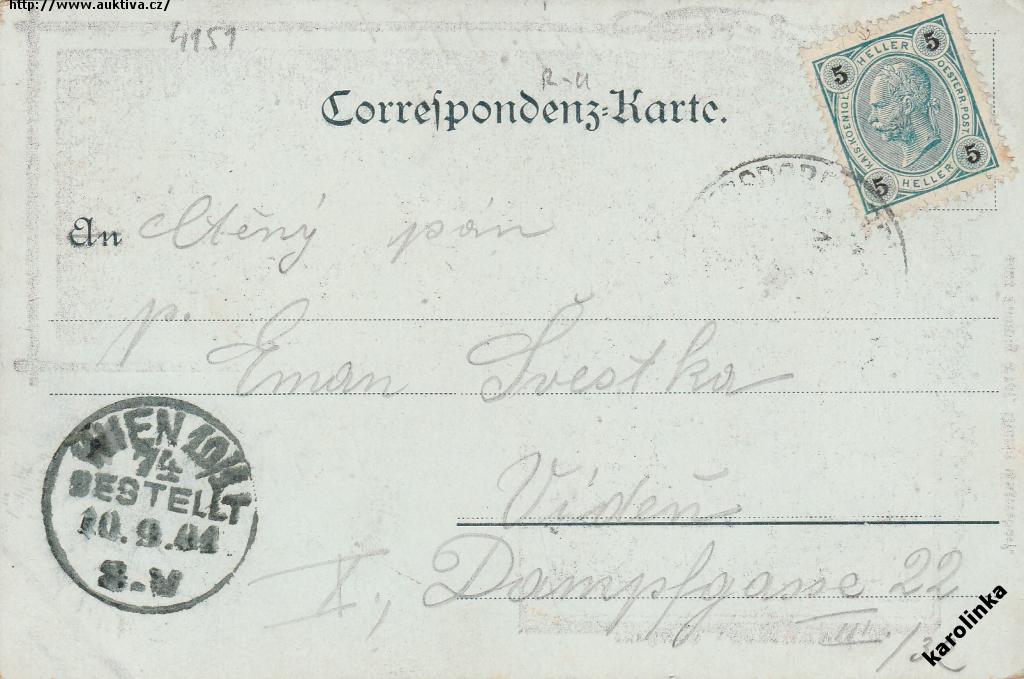 http://www.auktiva.cz/
4151
R-U
Correspondenz-Karte.
5 HELLER 5
KAIS. KOENIGL. OESTERR. POST
5 HELLER 5
An Ctěný pán
p. Eman Švestka
Vídeň
X., Dampfgasse 22
III
WIEN 10/1
74
BESTELLT
10.9.01
8-V
karolinka